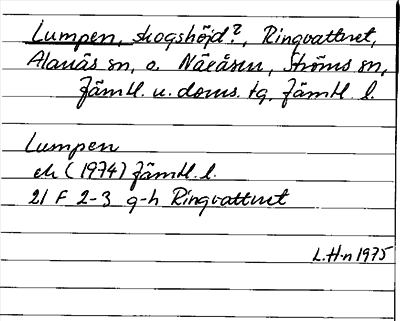 Lumpen, skogshöjd?, Ringvattnet,
Alanäs sn, o. Näsåsen, Ströms sn,
Jämtl. n. doms. tg, Jämtl. l.
Lumpen
ek (1974) Jämtl. l.
21 F 2-3 g-h Ringvattnet
L.H-n 1975